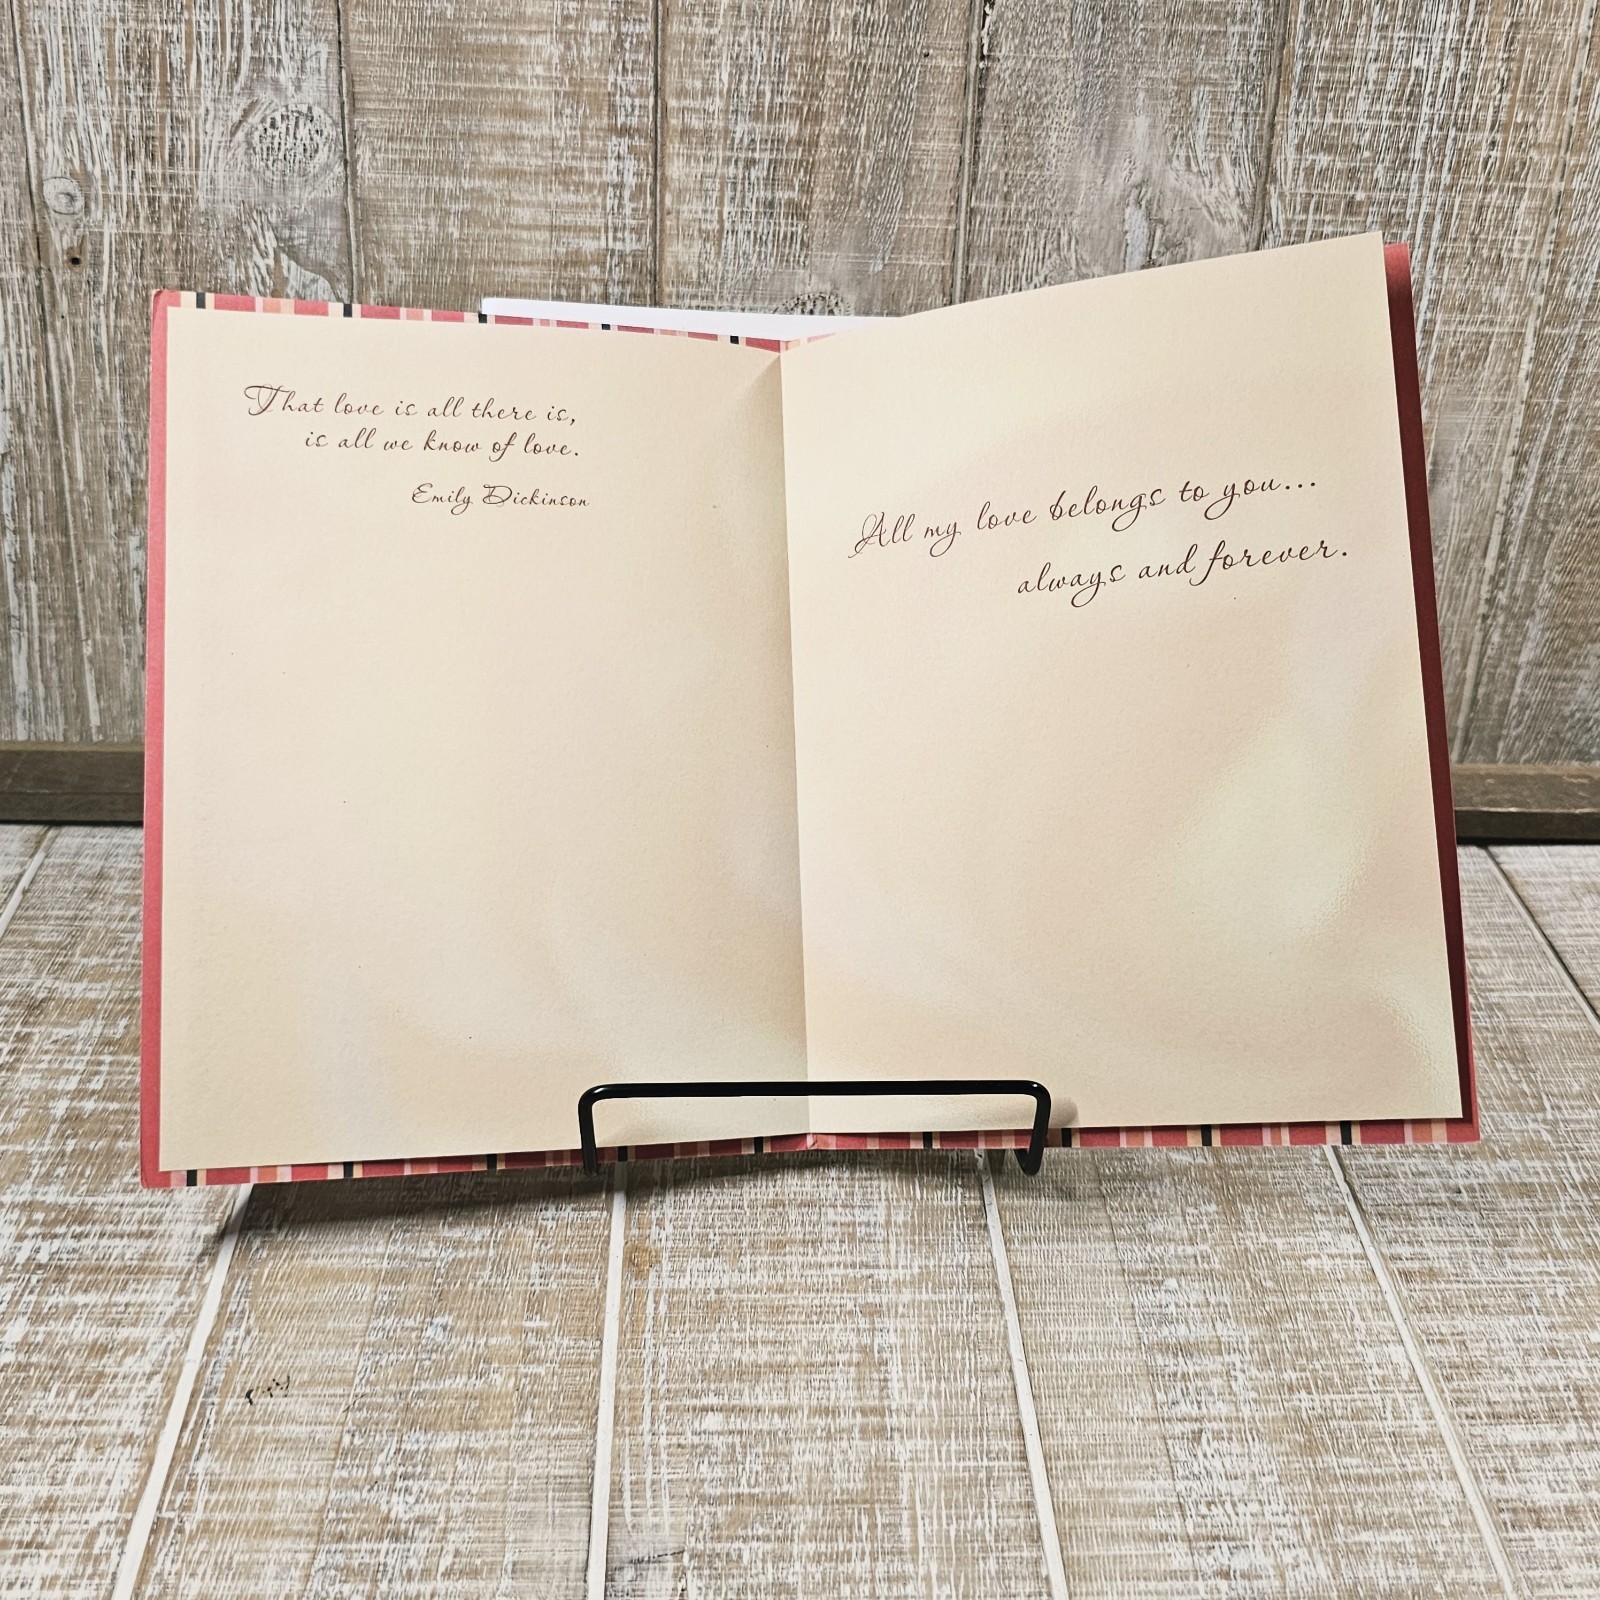 That love is all there is,
is all we know of love.
Emily Dickinson
All my love belongs to you...
always and forever.